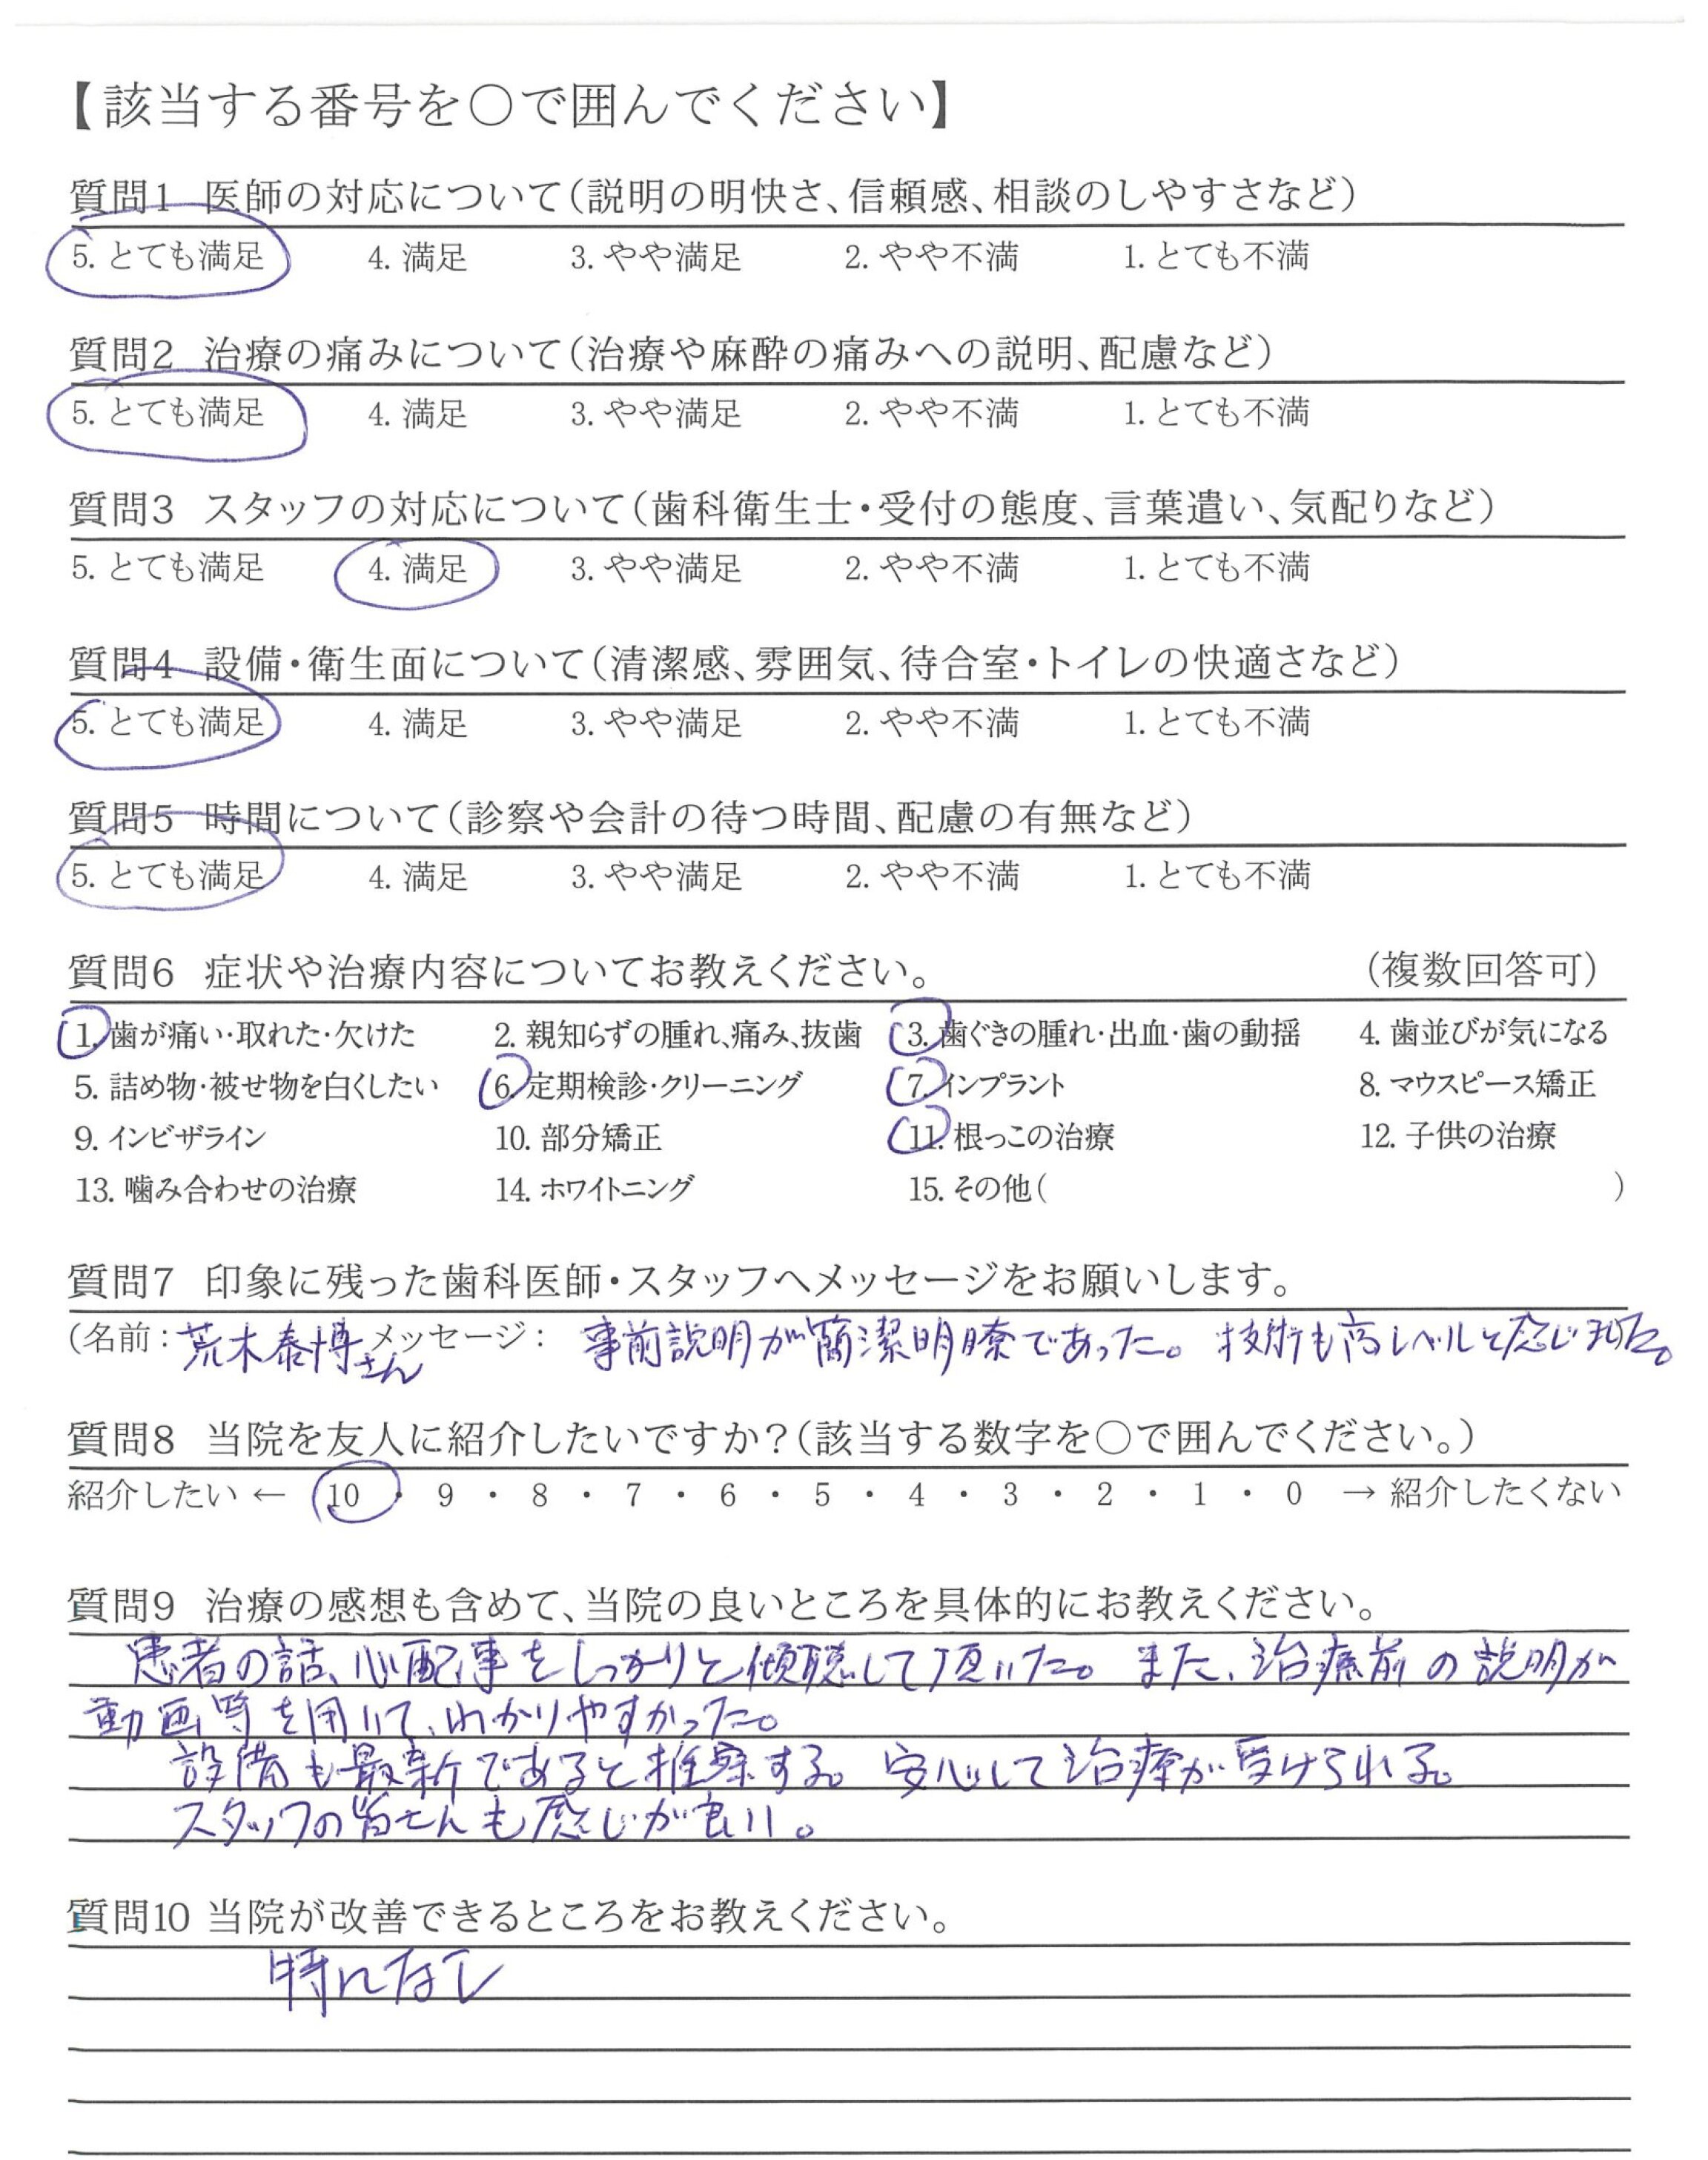 【該当する番号を○で囲んでください】
質問1 医師の対応について(説明の明快さ、信頼感、相談のしやすさなど)
5. とても満足 4. 満足 3. やや満足 2. やや不満 1. とても不満
質問2 治療の痛みについて(治療や麻酔の痛みへの説明、配慮など)
5. とても満足 4. 満足 3. やや満足 2. やや不満 1. とても不満
質問3 スタッフの対応について(歯科衛生士・受付の態度、言葉遣い、気配りなど)
5. とても満足 4. 満足 3. やや満足 2. やや不満 1. とても不満
質問4 設備・衛生面について(清潔感、雰囲気、待合室・トイレの快適さなど)
5. とても満足 4. 満足 3. やや満足 2. やや不満 1. とても不満
質問5 時間について(診察や会計の待つ時間、配慮の有無など)
5. とても満足 4. 満足 3. やや満足 2. やや不満 1. とても不満
質問6 症状や治療内容についてお教えください。 (複数回答可)
1. 歯が痛い・取れた・欠けた 2. 親知らずの腫れ、痛み、抜歯 3. 歯ぐきの腫れ・出血・歯の動揺 4. 歯並びが気になる
5. 詰め物・被せ物を白くしたい 6. 定期検診・クリーニング 7. インプラント 8. マウスピース矯正
9. インビザライン 10. 部分矯正 11. 根っこの治療 12. 子供の治療
13. 噛み合わせの治療 14. ホワイトニング 15. その他( )
質問7 印象に残った歯科医師・スタッフへメッセージをお願いします。
(名前:荒木泰博さん メッセージ: 事前説明が簡潔明瞭であった。技術も高レベルと感じました。
質問8 当院を友人に紹介したいですか?(該当する数字を○で囲んでください。)
紹介したい ← 10 ・ 9 ・ 8 ・ 7 ・ 6 ・ 5 ・ 4 ・ 3 ・ 2 ・ 1 ・ 0 → 紹介したくない
質問9 治療の感想も含めて、当院の良いところを具体的にお教えください。
患者の話、心配事をしっかりと傾聴して頂いた。また、治療前の説明が
動画等を用いて、わかりやすかった。
設備も最新であると推察する。安心して治療が受けられる。
スタッフの皆さんも感じが良い。
質問10 当院が改善できるところをお教えください。
特になし